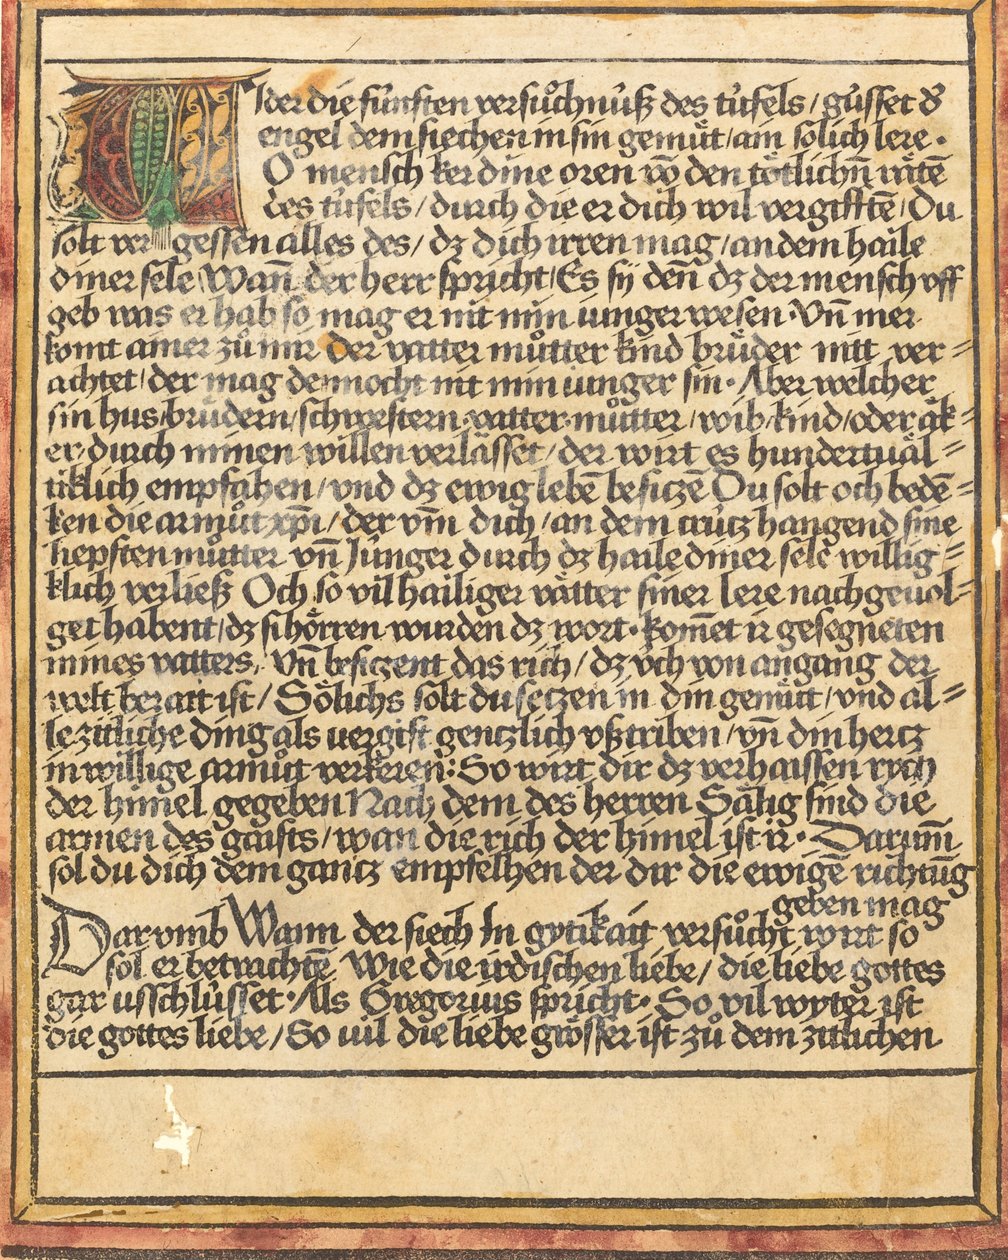 Wider die fúnften versuͦchnúß des túfels / gússet dˀ
engel dem siechen in sin gemuͤt / ain solich lere ·
O mensch ker dine oren võ den toͤtlichñ raͤtẽ
des túfels / durch die er dich wil vergifftẽ / Du
solt vergessen alles des / dz dich irren mag / an dem haile
diner sele Wañ der herr spricht / Es sij deñ dz der mensch vff
geb was er hab so mag er nit min iunger wesen · Vñ mer
komt ainer zuͦ mir der vatter muͦtter kind bruͤder nitt ver=
achtet / der mag dennocht nit min iunger sin · Aber welcher
sin hus / bruͤdern / schwestern vatter muͦtter / wib / kind / oder aͤk=
er durch minen willen verlaͤsset / der wirt es hundertuaͤl=
tiklich empfahen / vnd dz ewig lebẽ besiczẽ Du solt och bedẽ=
ken die armuͦt xp̃i / der vm̃ dich / an dem crútz hangend sine
liepsten muͦtter vñ Júnger durch dz haile diner sele willig=
klich verließ Och so vil hailiger vaͤtter siner lere nachgeuol=
get habent / dz si hoͤrren wurden dz wort · Komẽt ir gesegneten
mines vatters · vñ besiczent das rich / dz v́ch von angang der
welt berait ist / Soͤlichs solt du seczen in din gemuͤtt / vnd al=
le zittliche ding als vergift genczlich vßtriben / vñ din hertz
in willige armuͦtt verkeren : So wirt dir dz verhaissen rych
der him̃el gegeben Nach dem des herren Saͤlig sind die
armen des gaists / wan die rich der him̃el ist ir · Darum̃
sol du dich dem gantz empfelhen der dir die ewigẽ richtũg
geben mag
Darvmb Wann der siech In gytikait versuͦcht wirt so
sol er betrachtẽ Wie die irdischen liebe / die liebe gottes
gar usschlússet · Als Gregorius spricht · So vil wyter ist
die gottes liebe / So uil die liebe groͤsser ist zuͦ dem zitlichen